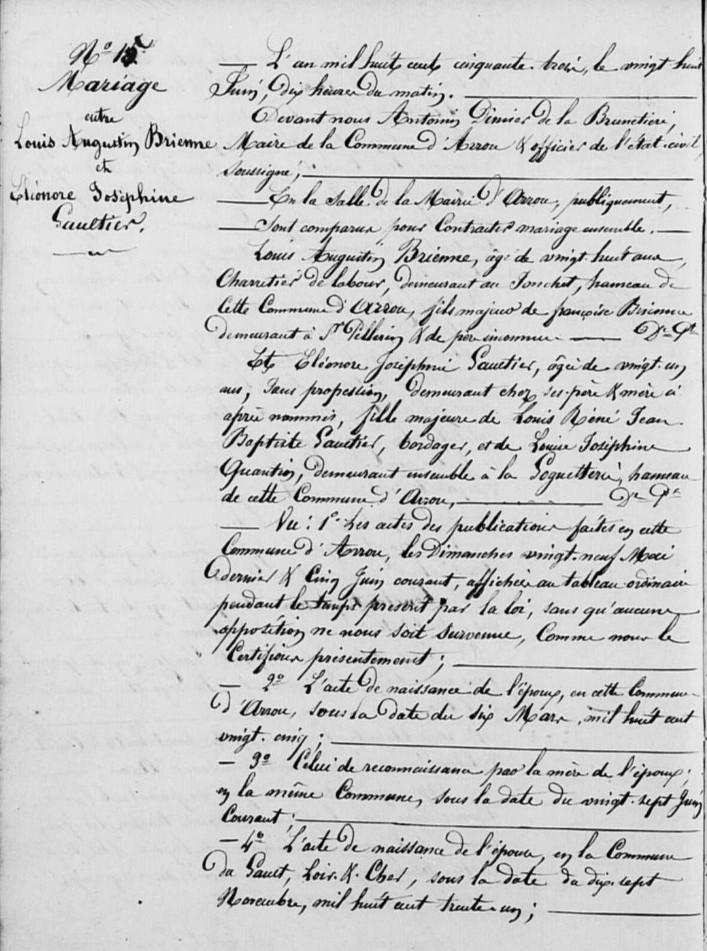 N° 15.
Mariage
entre
Louis Augustin Brienne
et
Eléonore Joséphine
Gaultier.
L'an mil huit cent cinquante-trois, le vingt huit
Juin, dix heures du matin.
Devant nous Antonin Dinier de la Brunetière,
Maire de la Commune d'Arrou & officier de l'état-civil,
soussigné,
En la Salle de la Mairie d'Arrou, publiquement,
Sont comparus pour Contracter mariage ensemble.
Louis Augustin Brienne, âgé de vingt huit ans,
Charretier de labour, demeurant au Jonchet, hameau de
Cette Commune d'Arrou, fils majeur de françoise Brienne
demeurant à St Pellerin & de père inconnu
Et Eléonore Joséphine Gaultier, âgée de vingt-un
ans, sans profession, demeurant chez ses père & mère ci
après nommés, fille majeure de Louis Réné Jean
Baptiste Gaultier, bordager, et de Louise Joséphine
Quantin, demeurant ensemble à la Goguetterie, hameau
de cette Commune d'Arrou,
Vu: 1° Les actes des publications faites en cette
Commune d'Arrou, les Dimanches vingt-neuf Mai
dernier & Cinq Juin courant, affichées au tableau ordinaire
pendant le temps prescrit par la loi, sans qu'aucune
opposition ne nous soit survenue, Comme nous le
Certifions présentement;
2° L'acte de naissance de l'époux, en cette Commune
d'Arrou, sous la date du six Mars, mil huit cent
vingt-cinq;
3° Celui de reconnaissance par la mère de l'époux,
en la même Commune, sous la date du vingt-sept Juin
Courant.
4° L'acte de naissance de l'épouse, en la Commune
du Gault, Loir-&-Cher, sous la date du dix-sept
Novembre, mil huit cent trente-un;